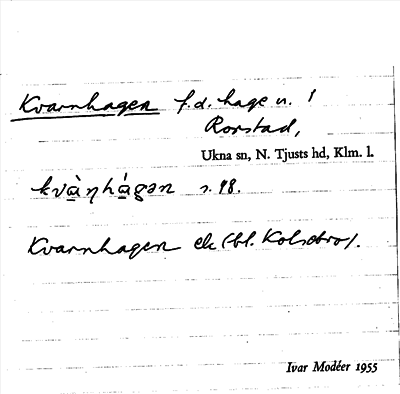 Kvarnhagen f.d. hage u. 1
Rorstad,
Ukna sn, N. Tjusts hd, Klm. l.
kvàŋhágən s. 98.
Kvarnhagen ek (bl. Kolsebro).
Ivar Modéer 1955